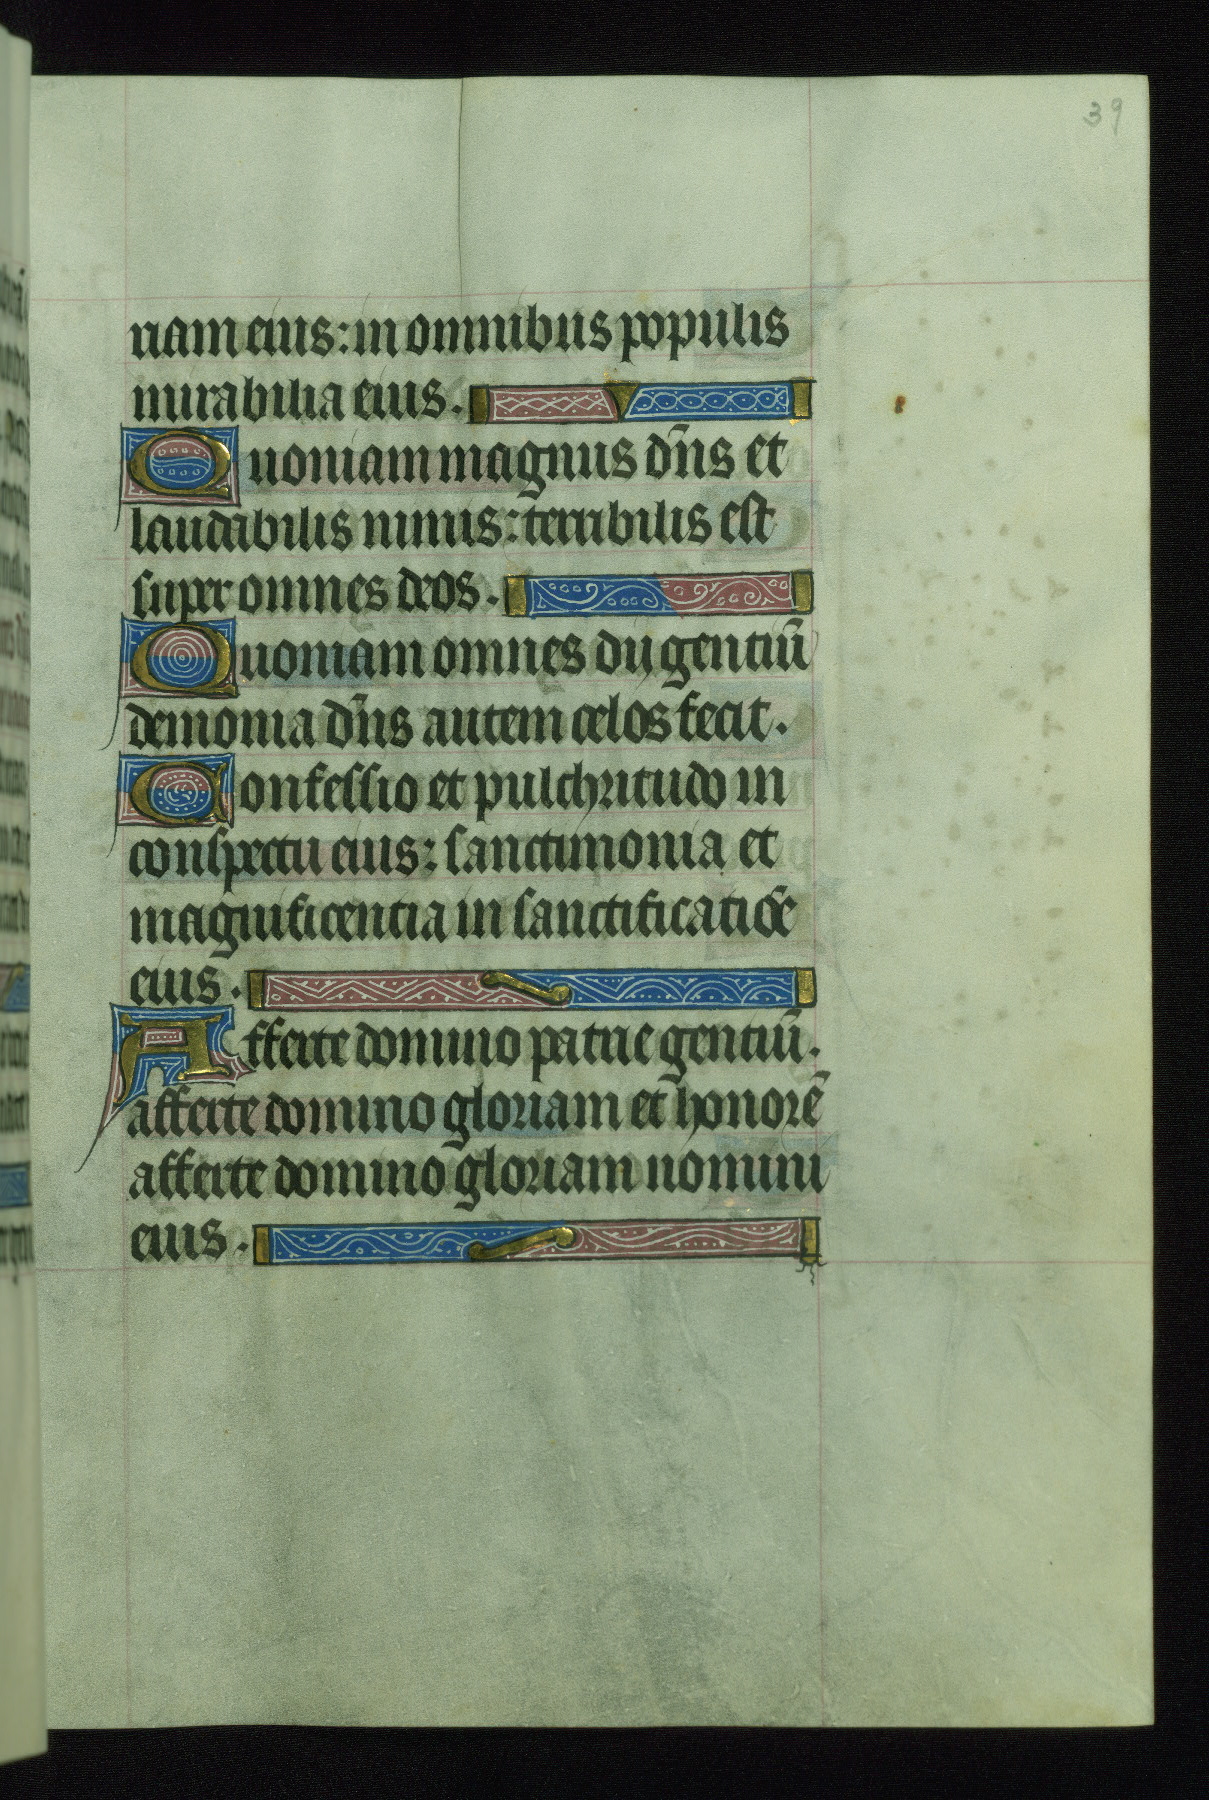 39
riam eius: in omnibus populis
mirabilia eius.
Quoniam magnus dn̄s et
laudabilis nimis: terribilis est
super omnes deos.
Quoniam omnes dii gentiū
demonia dn̄s autem celos fecit.
Confessio et pulchritudo in
conspectu eius: sanctimonia et
magnificentia in sanctificatiōe
eius.
Afferte domino patrie gentiū.
afferte domino gloriam et honorē
afferte domino gloriam nomini
eius.